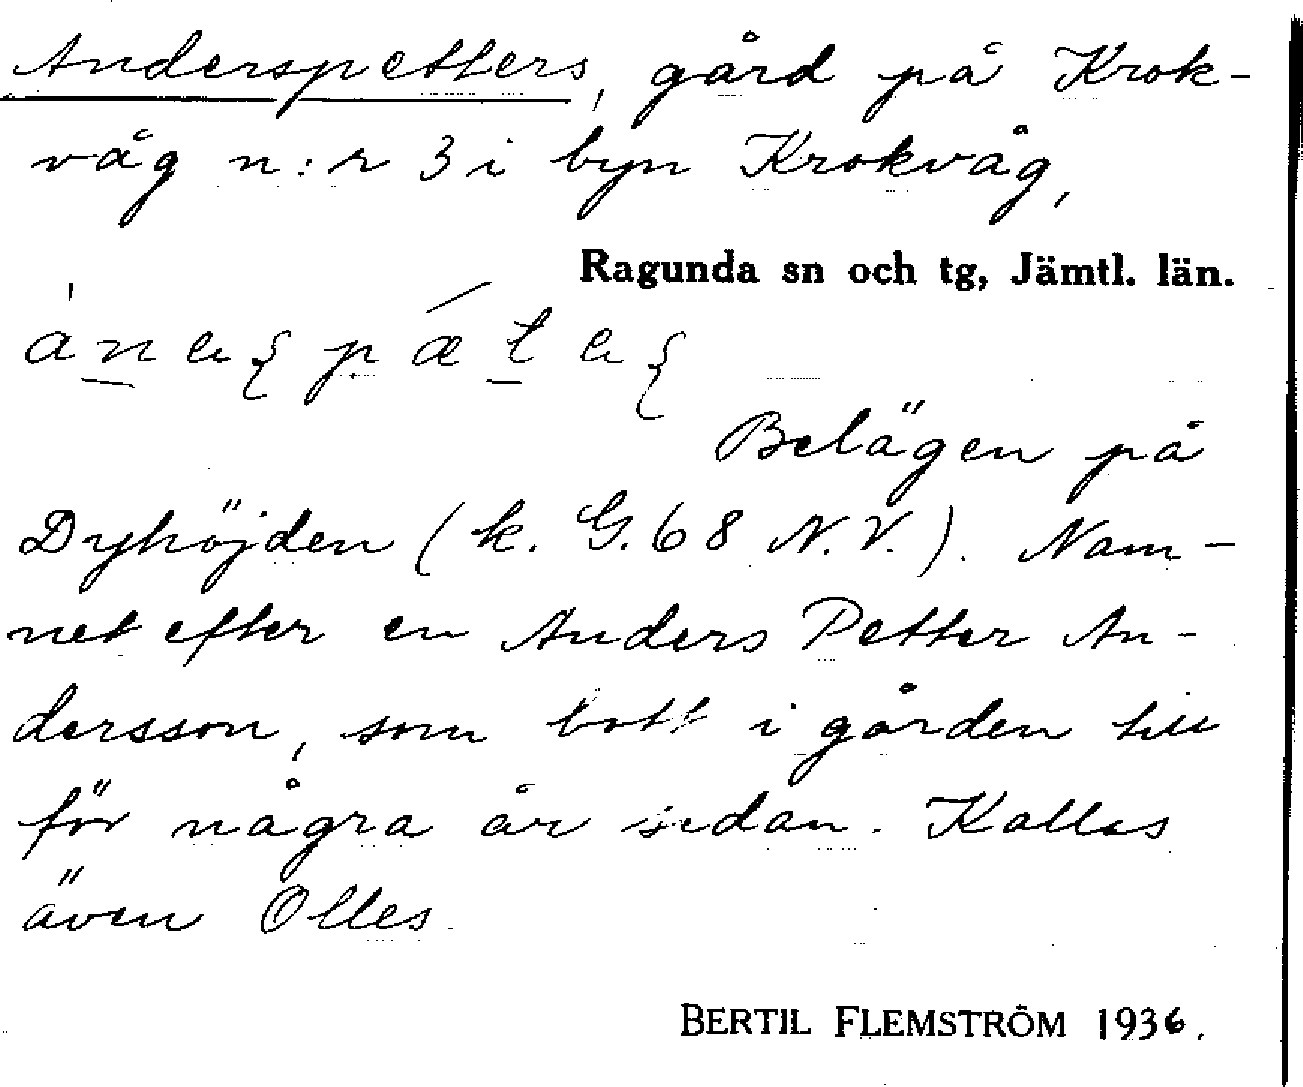 Anderspetters, gård på Krok-
våg n:r 3 i byn Krokvåg,
Ragunda sn och tg, Jämtl. län.
Belägen på
Dryhöjden (k. G. 68 N.V.). Nam-
net efter en Anders Petter An-
dersson, som bott i gården till
för några år sedan. Kallas
även Olles
BERTIL FLEMSTRÖM 1936.